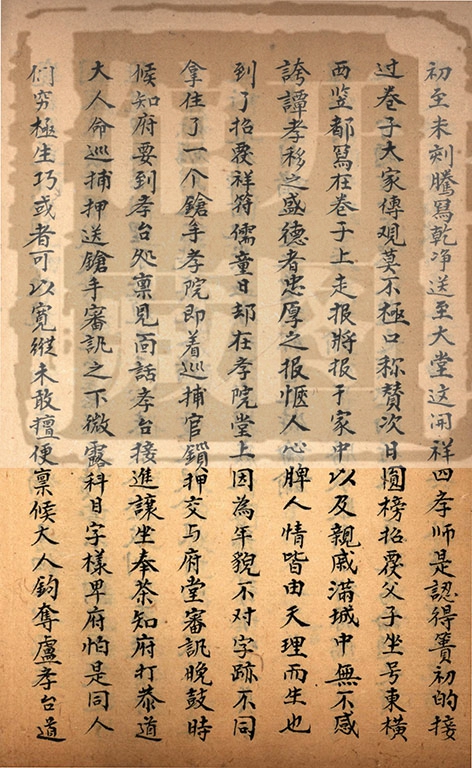 初至未刻騰寫乾净送至大堂这開祥四孝师是認得簣初的接
过卷子大家傳观莫不極口称赞次日圓榜招覆父子坐号東橫
西竖都寫在卷子上走报將报于家中以及親戚滿城中無不感
誇譚孝移之盛德者忠厚之报愜人心脾人情皆由天理而生也
到了招覆祥符儒童日却在孝院堂上因為年貌不对字跡不同
拿住了一个鎗手孝院即着巡捕官鎖押交与府堂審訊晚鼓時
候知府要到孝台处禀見面話孝台接進讓坐奉茶知府打恭道
大人命巡捕押送鎗手審訊之下微露科目字樣卑府怕是同人
们穷極生巧或者可以寬縱未敢擅便禀候大人鈞奪盧孝台道